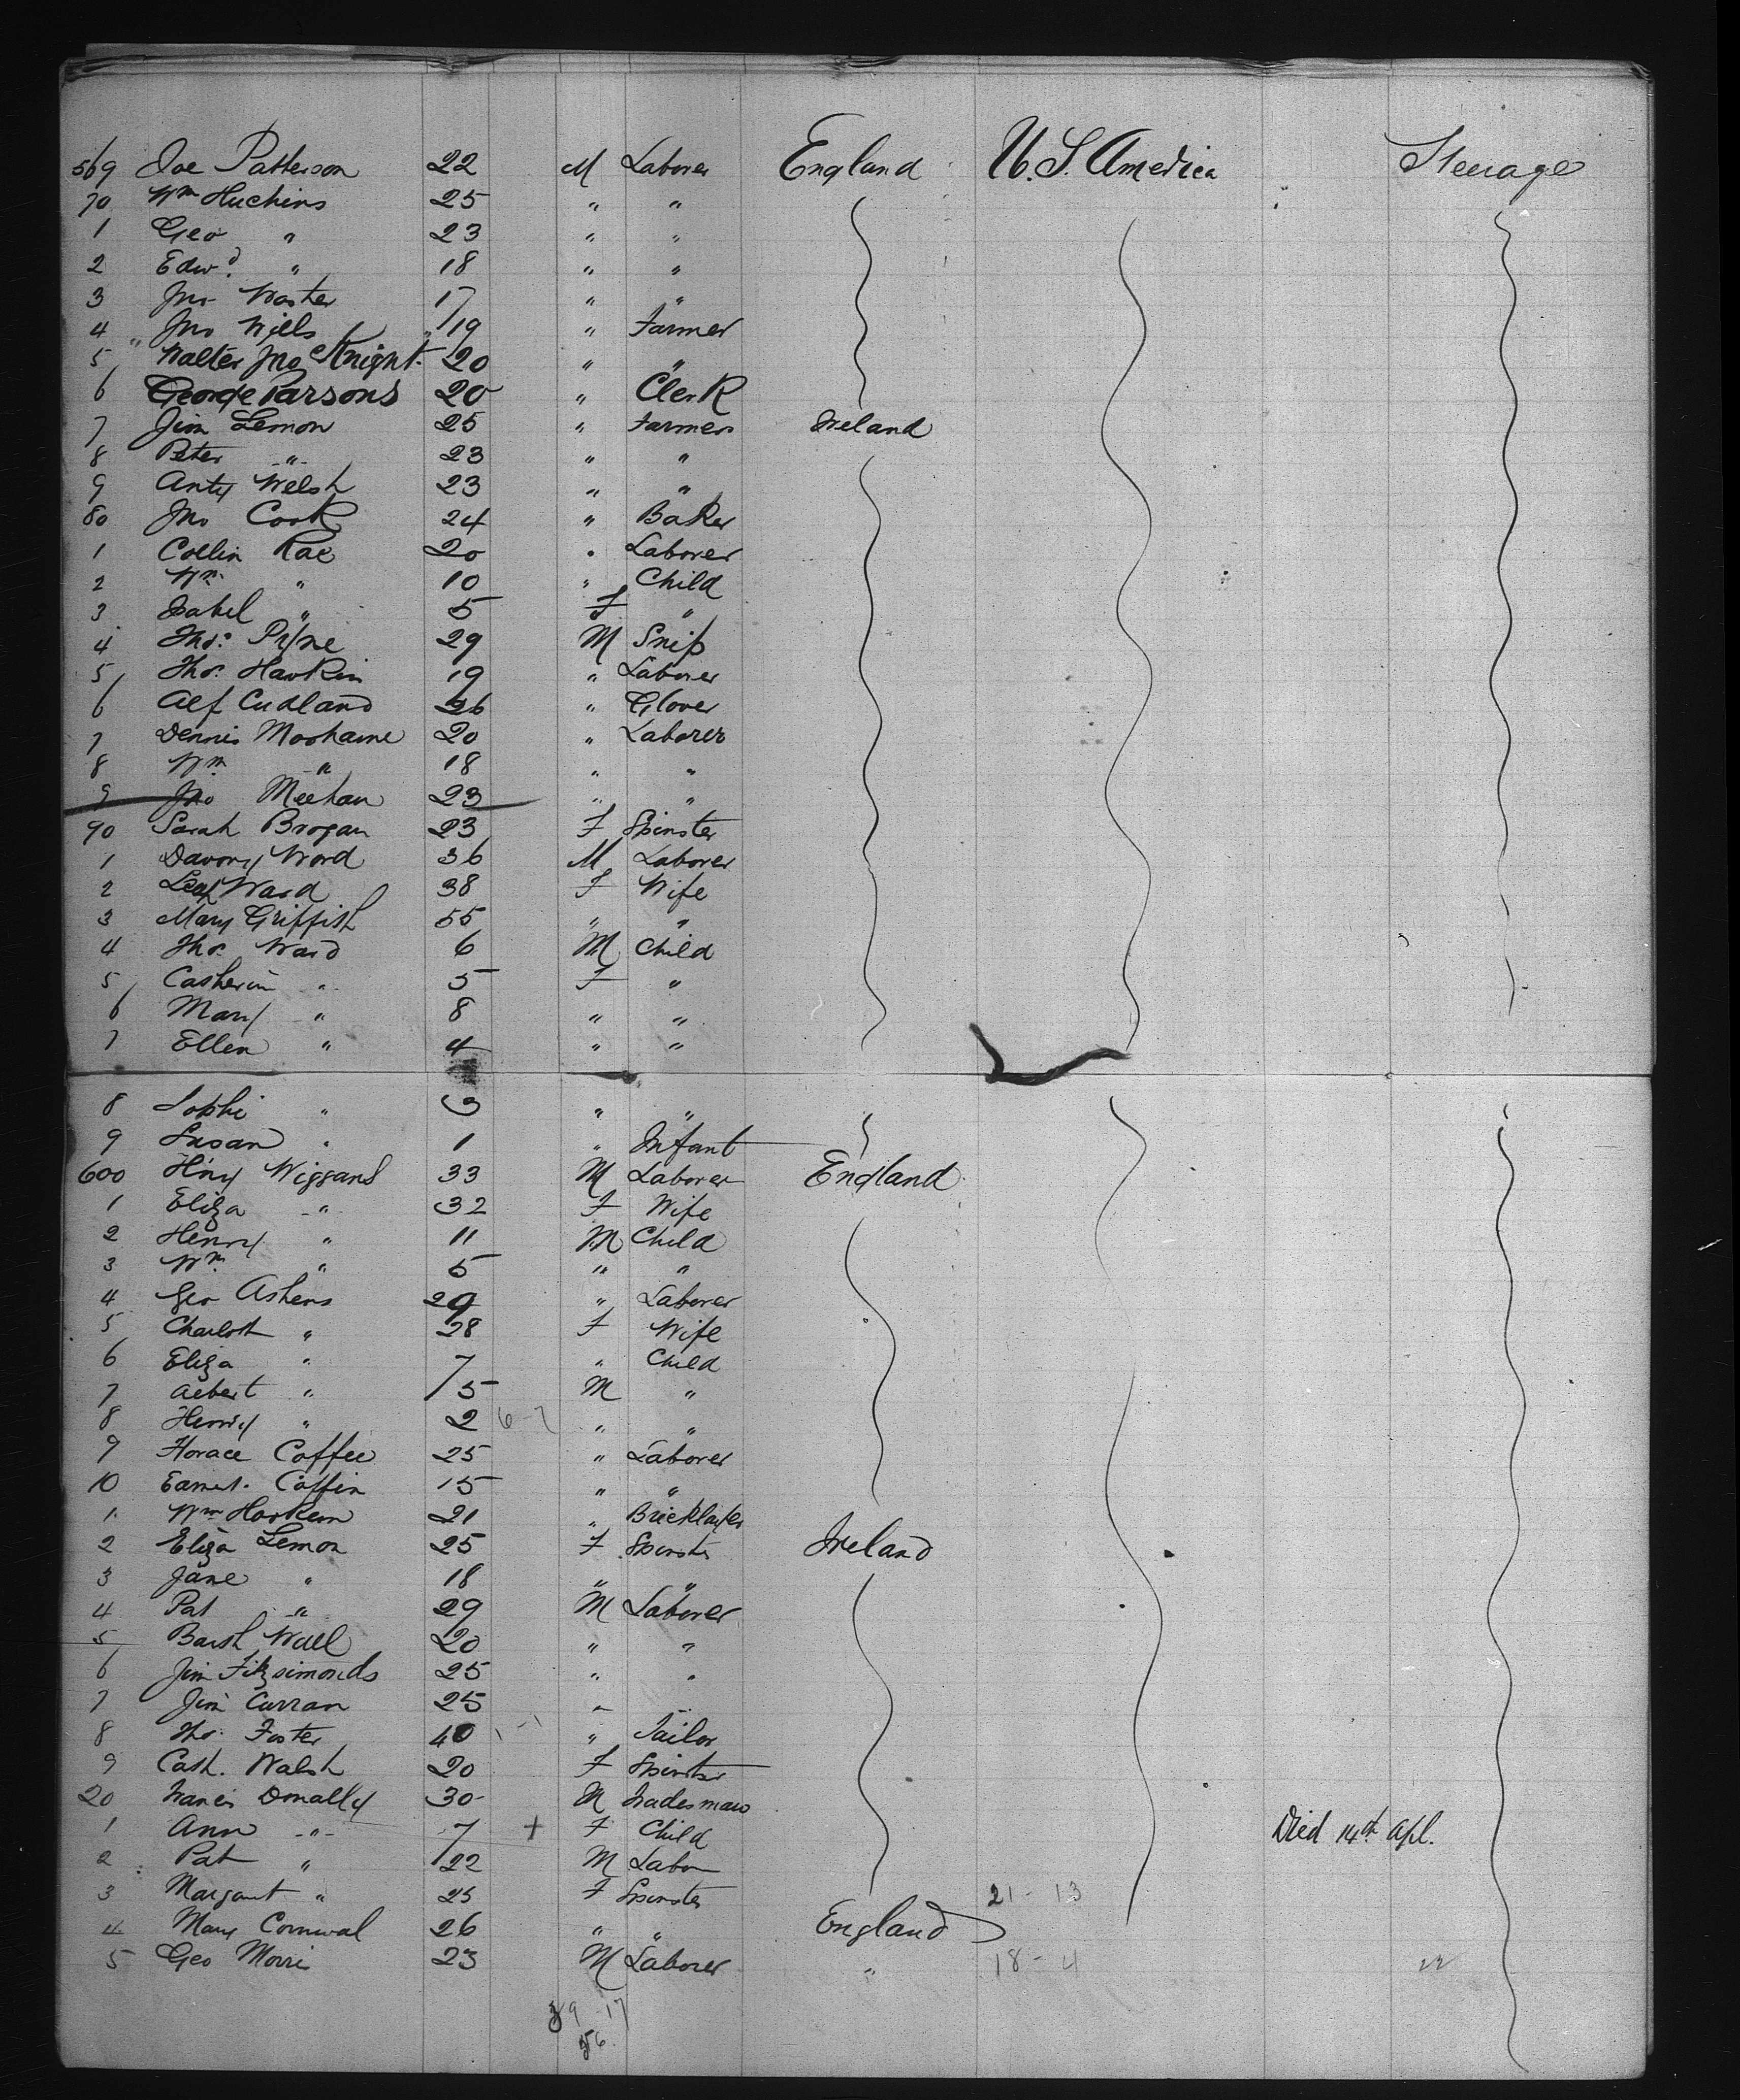 569 Joe Patterson 22 M Laborer England U. S. America Steerage
70 Wm Huchins 25 " "
1 Geo " 23 " "
2 Edwd. " 18 " "
3 Jno 17 " "
4 Jno Wills 19 " Farmer
5 Walter Jno Knight 20 " "
6 George Parsons 20 " Clerk
7 Jim Lemon 25 " Farmer Ireland
8 Peter " 23 " "
9 Anty Welsh 23 " "
80 Jno Cook 24 " Baker
1 Collin Rae 20 " Laborer
2 Wm " 10 " Child
3 Isabel " 5 F "
4 Thos. Pyne 29 M
5 Thos. Hawkin 19 " Laborer
6 Alf Cudland 26 " Glover
7 Dennis 20 " Laborer
8 Wm " 18 " "
9 Jno Meehan 23 " "
90 Sarah Brogan 23 F Spinster
1 Ward 36 M Laborer
2 Ward 38 F Wife
3 Mary Griffith 55 " "
4 Thos. Ward 6 M Child
5 Catherin " 5 F "
6 Mary " 8 " "
7 Ellen " 4 " "
8 Sophi " 3 " "
9 Susan " 1 " Infant
600 Hny Wiggans 33 M Laborer England
1 Eliza " 32 F Wife
2 Henry " 11 M Child
3 Wm " 5 " "
4 Geo Ashens 29 " Laborer
5 Charlott " 28 F Wife
6 Eliza " 7 " Child
7 Albert " 5 M "
8 Henry " 2 6-7 " "
9 Horace Coffee 25 " Laborer
10 Coffin 15 " "
1 Wm 21 " Bricklayer
2 Eliza Lemon 25 F Spinster Ireland
3 Jane " 18 " "
4 Pat " 29 M Laborer
5 Wall 20 " "
6 Jim Fitzsimonds 25 " "
7 Jim Curran 25 "
8 Tho. Foster 40 1-1 " Tailor
9 Cath. Walsh 20 F Spinster
20 Donally 30 M Tradesman
1 Ann " 7 + F Child Died 14th Apl.
2 Pat " 22 M Labor
3 Margaret " 25 F Spinster 21-13
4 Mary Cornwal 26 " " England
5 Geo Morris 23 M Laborer " 18-4 22
39-17
56